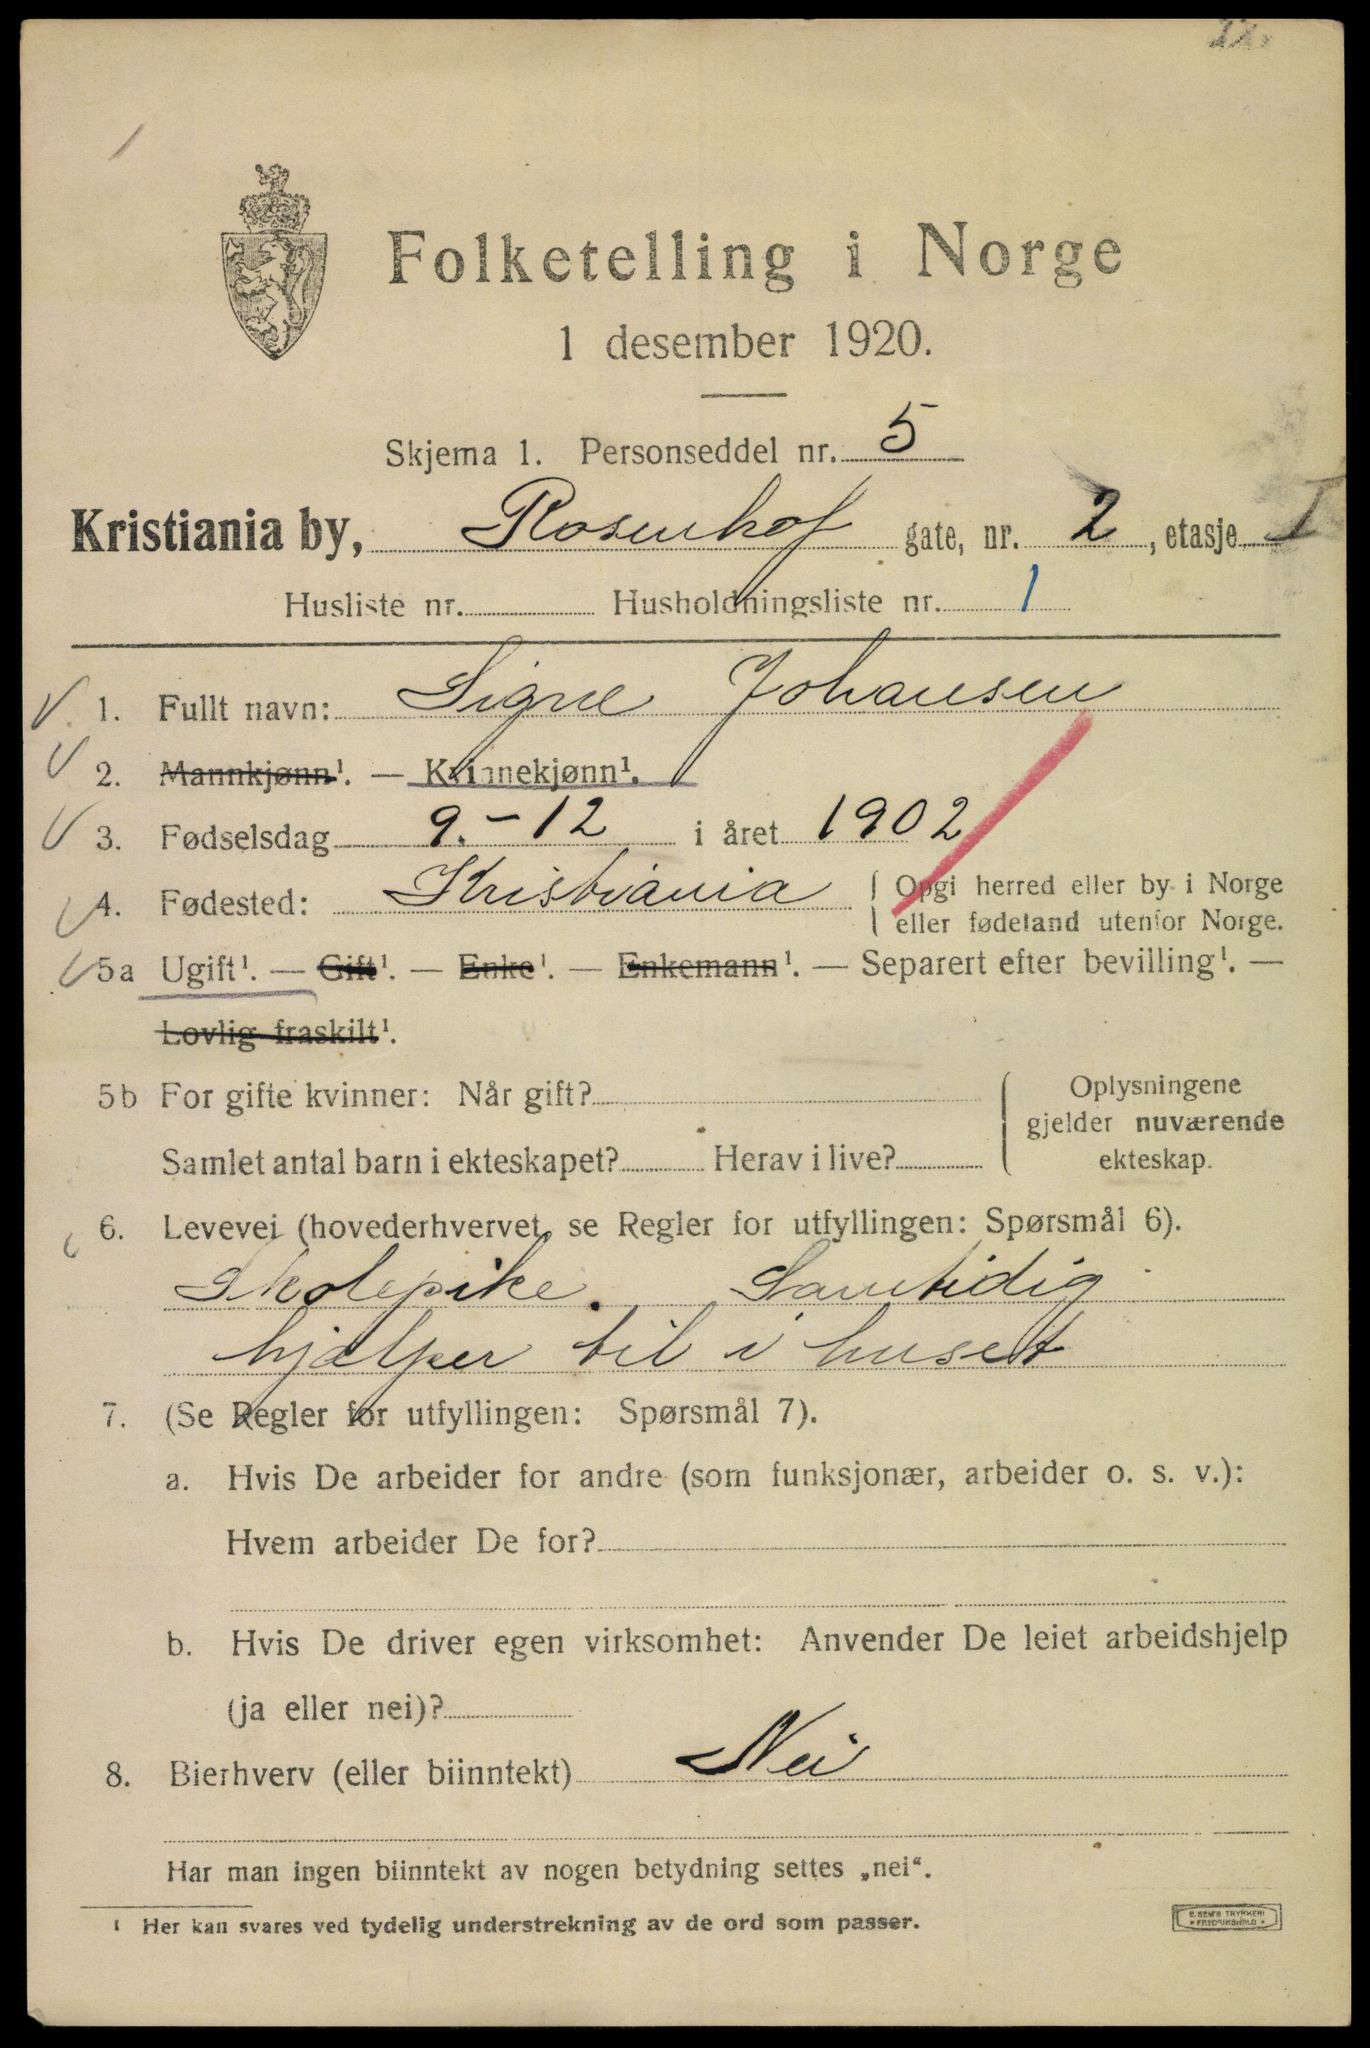 22.
Folketelling i Norge
1 desember 1920.
Skjema 1. Personseddel nr. 5
Kristiania by, Rosenhof gate, nr. 2, etasje I
Husliste nr. Husholdningsliste nr. 1
1. Fullt navn: Signe Johansen
2. Mannkjønn¹. — Kvinnekjønn¹.
3. Fødselsdag 9.-12 i året 1902
4. Fødested: Kristiania Opgi herred eller by i Norge
eller fødeland utenfor Norge.
5a Ugift¹. — Gift¹. — Enke¹. — Enkemann¹. — Separert efter bevilling¹. —
Lovlig fraskilt¹.
5b For gifte kvinner: Når gift?
Samlet antal barn i ekteskapet? Herav i live?
Oplysningene
gjelder nuværende
ekteskap.
6. Levevei (hovederhvervet, se Regler for utfyllingen: Spørsmål 6).
Skolepike. Samtidig
hjælper til i huset
7. (Se Regler for utfyllingen: Spørsmål 7).
a. Hvis De arbeider for andre (som funksjonær, arbeider o. s. v.):
Hvem arbeider De for?
b. Hvis De driver egen virksomhet: Anvender De leiet arbeidshjelp
(ja eller nei)?
8. Bierhverv (eller biinntekt) Nei
Har man ingen biinntekt av nogen betydning settes „nei“.
¹ Her kan svares ved tydelig understrekning av de ord som passer.
E. SEM'S TRYKKERI
FREDRIKSHALD